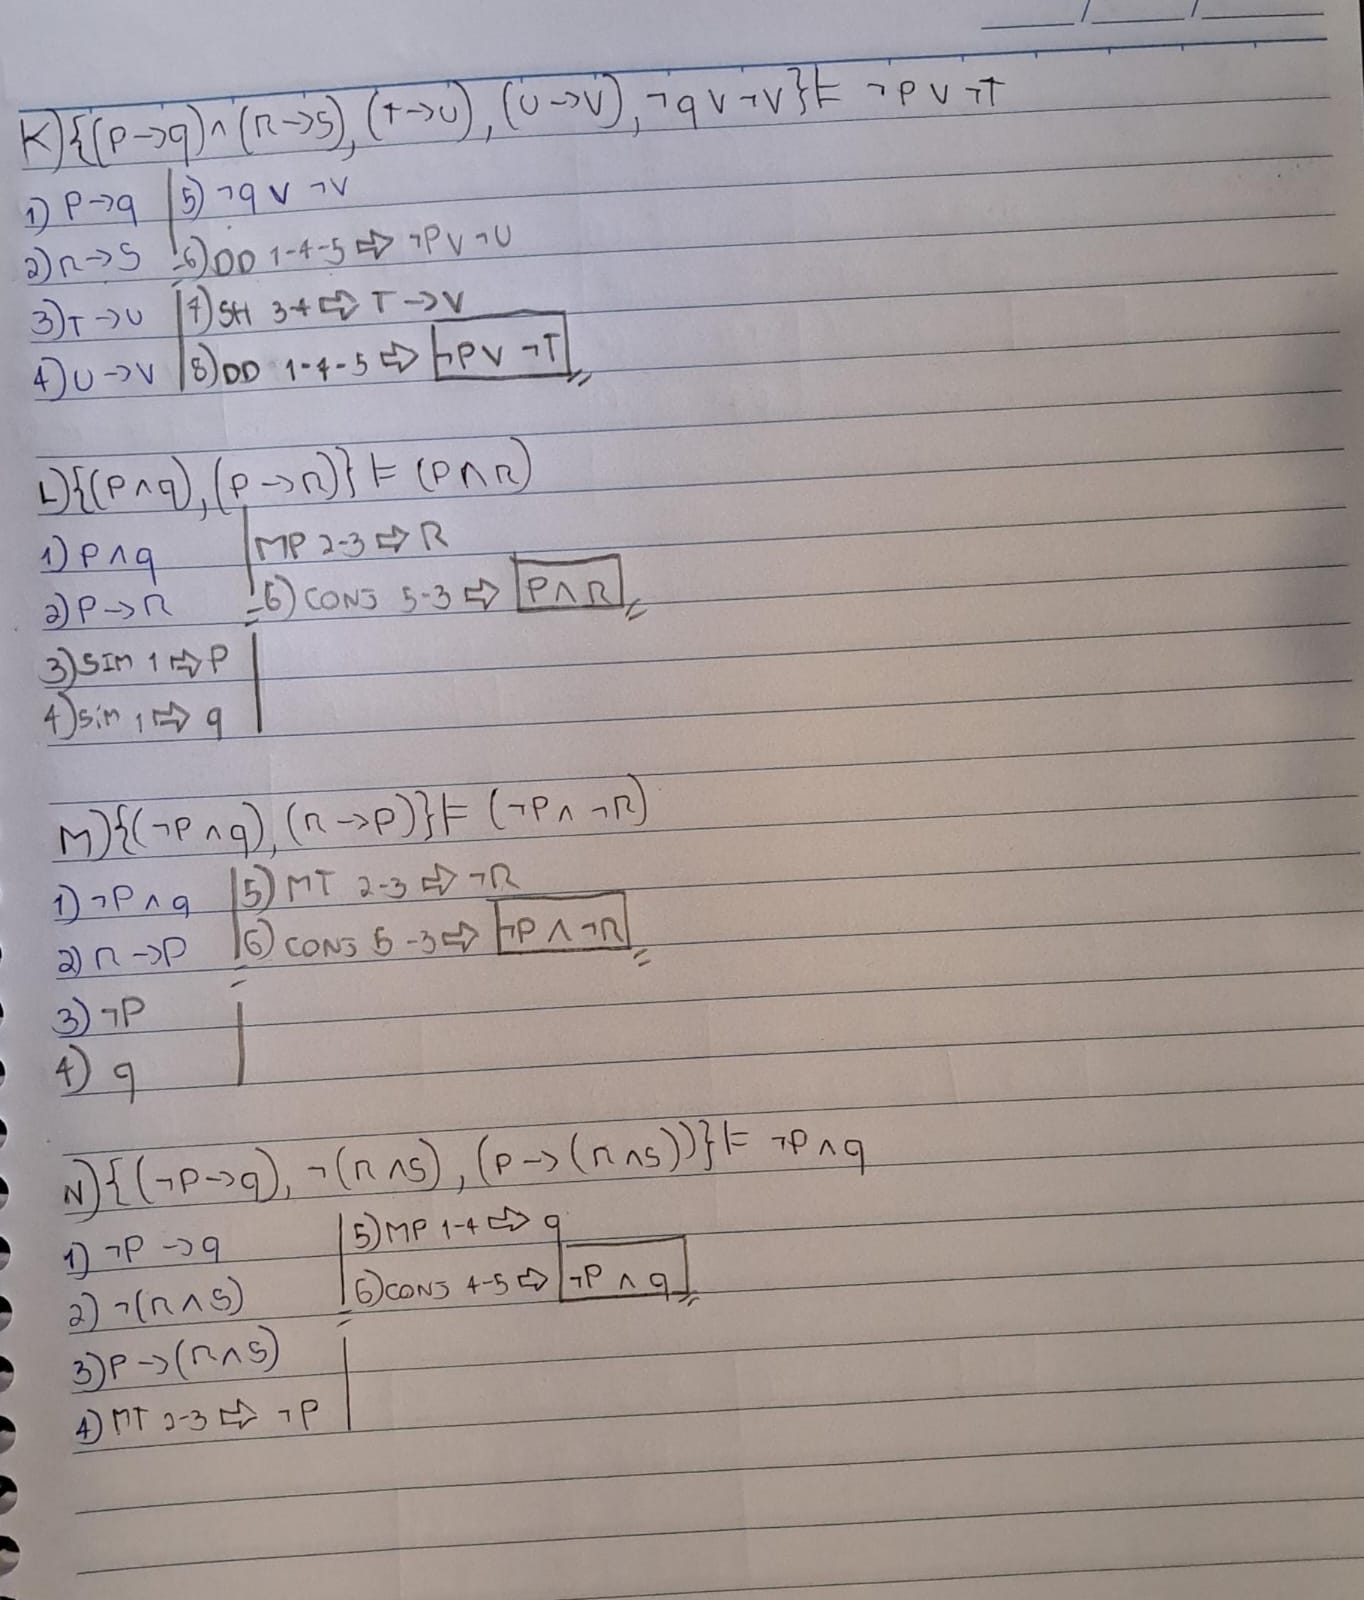 __/__/__
K) {(P→q)∧(R→S), (T→U), (U→V), ¬q∨¬V} ⊨ ¬P∨¬T
1) P→q
2) R→S
3) T→U
4) U→V
5) ¬q ∨ ¬V
6) DD 1-4-5 ⇨ ¬P∨¬U
7) SH 3-4 ⇨ T→V
8) DD 1-7-5 ⇨ ¬P∨¬T
L) {(P∧q), (P→R)} ⊨ (P∧R)
1) P∧q
2) P→R
3) SIM 1 ⇨ P
4) sim 1 ⇨ q
MP 2-3 ⇨ R
6) CONJ 5-3 ⇨ P∧R
M) {(¬P∧q), (R→P)} ⊨ (¬P∧¬R)
1) ¬P∧q
2) R→P
3) ¬P
4) q
5) MT 2-3 ⇨ ¬R
6) CONJ 5-3 ⇨ ¬P∧¬R
N) {(¬P→q), ¬(R∧S), (P→(R∧S))} ⊨ ¬P∧q
1) ¬P→q
2) ¬(R∧S)
3) P→(R∧S)
4) MT 2-3 ⇨ ¬P
5) MP 1-4 ⇨ q
6) CONJ 4-5 ⇨ ¬P∧q